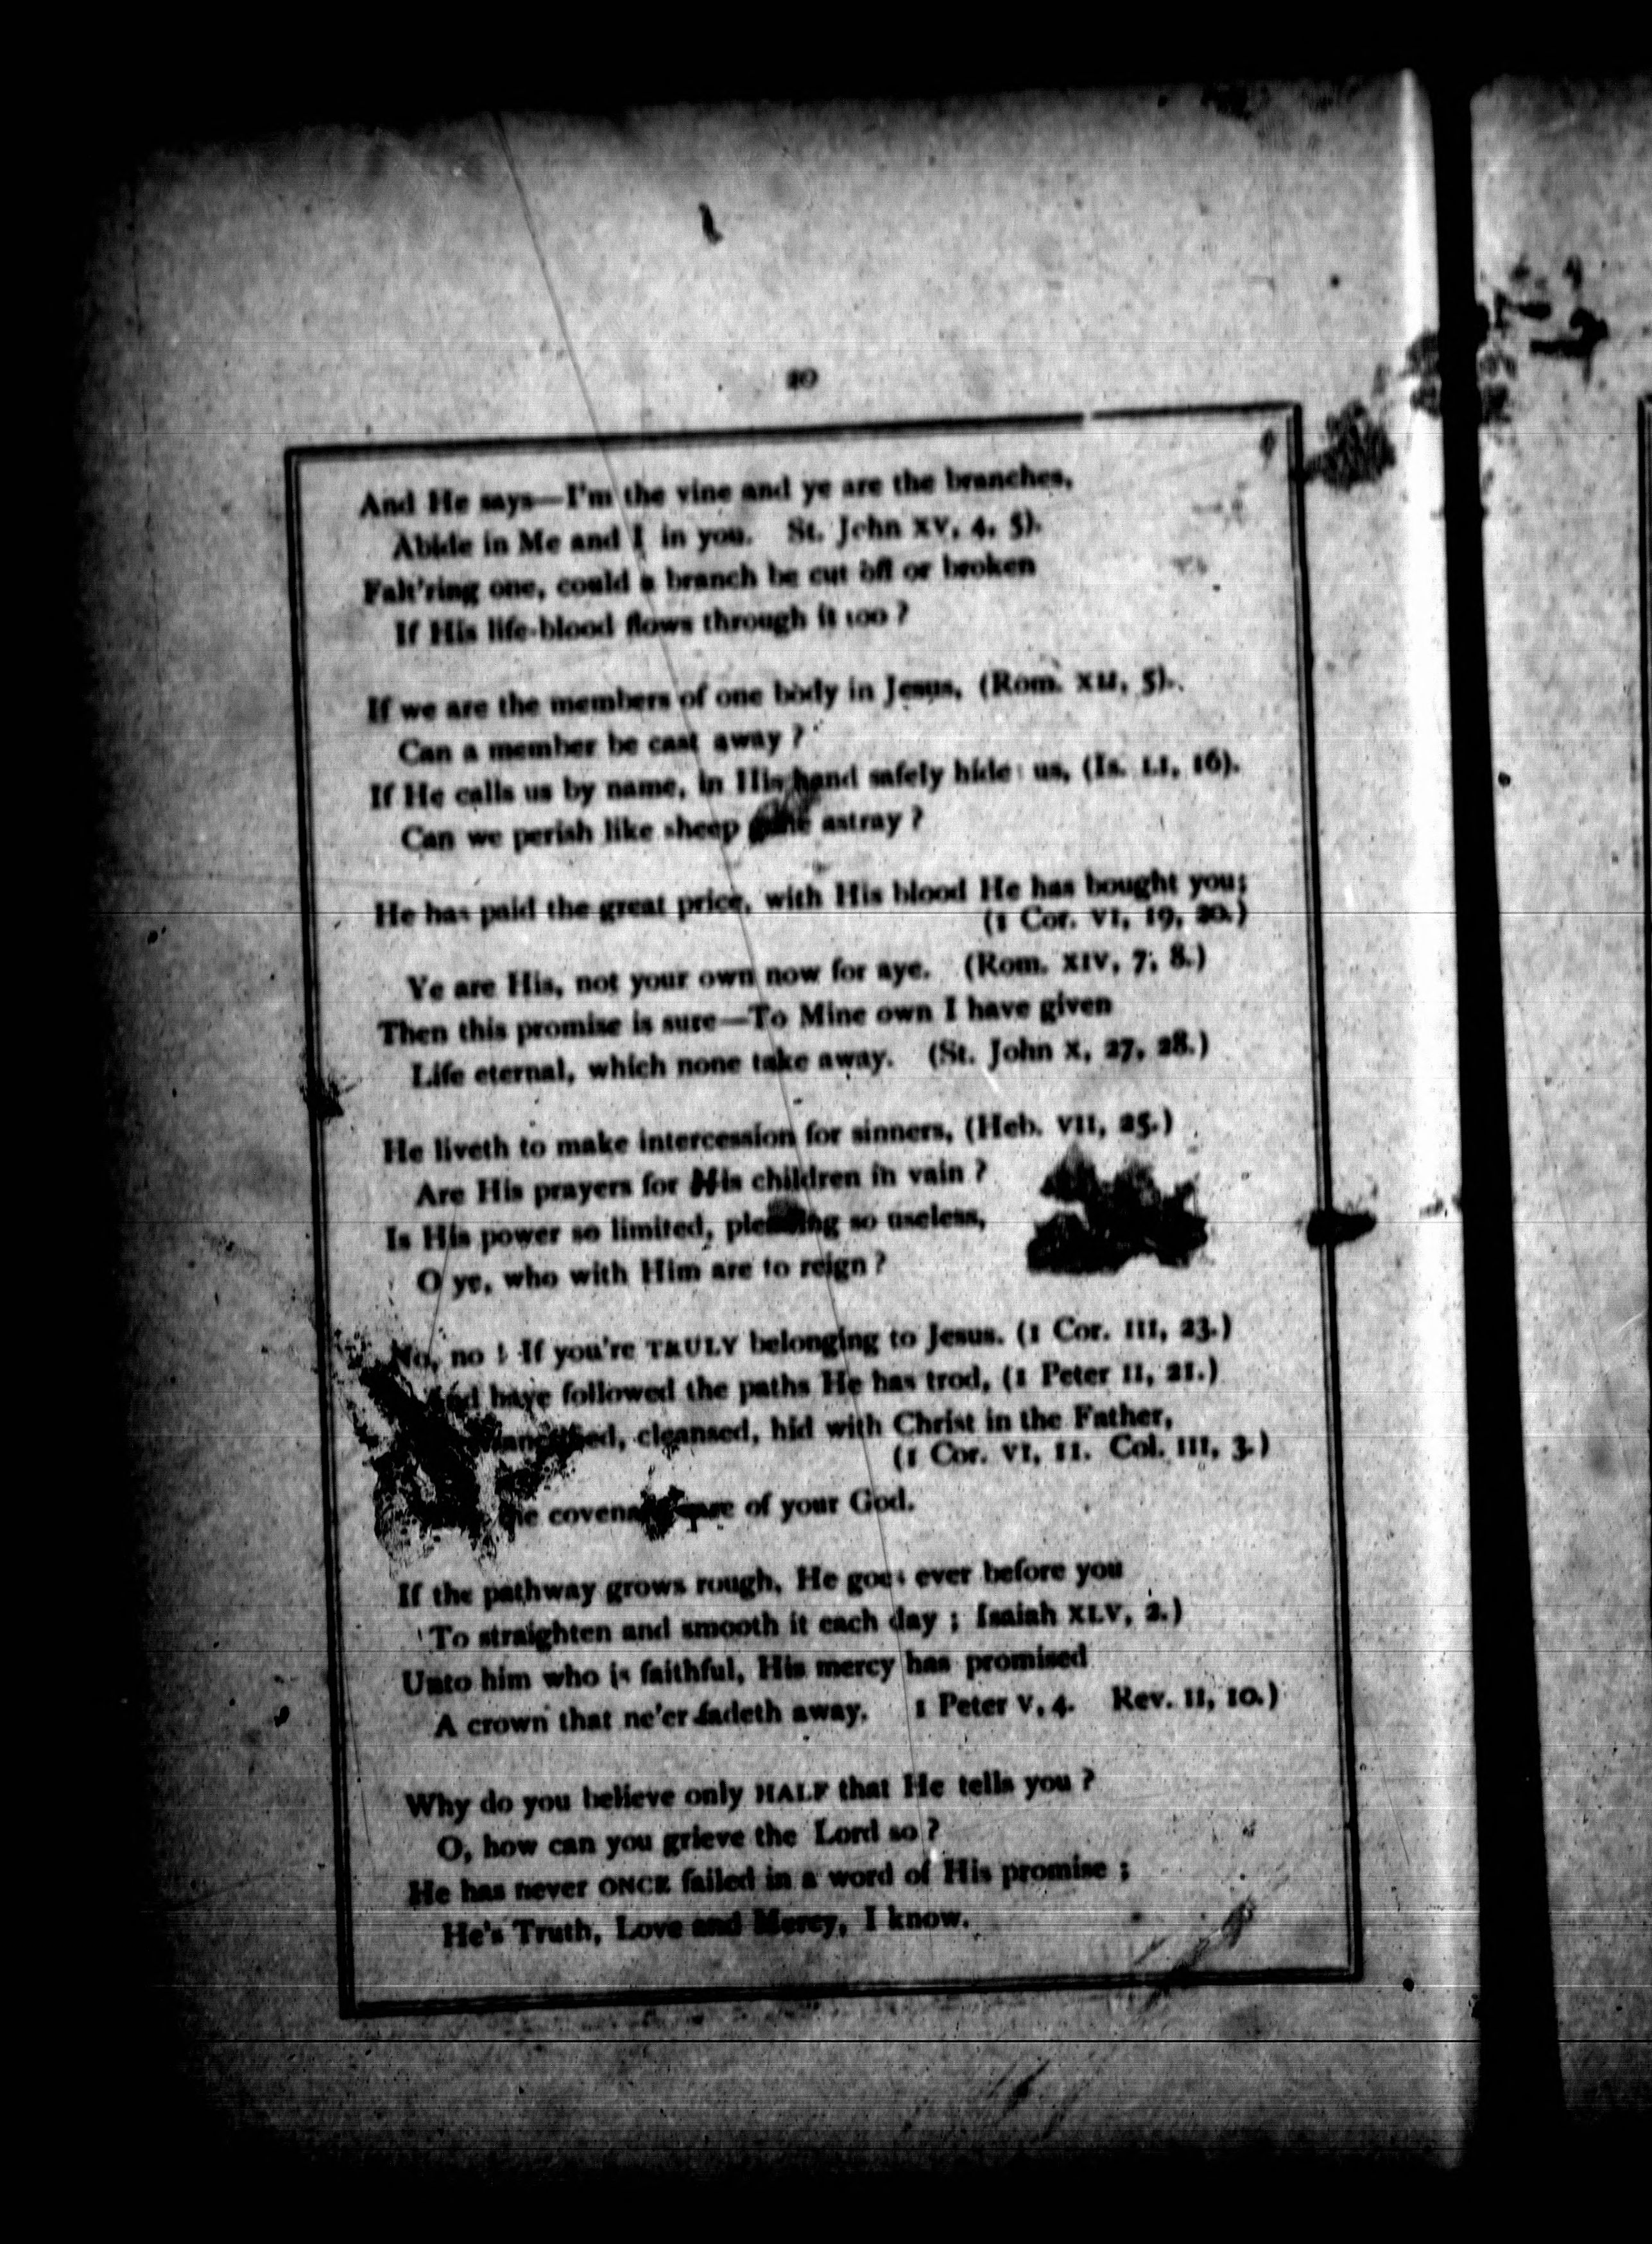 20
And He says—I'm the vine and ye are the branches,
Abide in Me and I in you. St. John XV, 4, 5).
Falt'ring one, could a branch be cut off or broken
If His life-blood flows through it too ?
If we are the members of one body in Jesus, (Rom. XII, 5).
Can a member be cast away ?
If He calls us by name, in His hand safely hides us, (Is. LI, 16).
Can we perish like sheep gone astray ?
He has paid the great price, with His blood He has bought you;
(1 Cor. VI, 19, 20.)
Ye are His, not your own now for aye. (Rom. XIV, 7, 8.)
Then this promise is sure—To Mine own I have given
Life eternal, which none take away. (St. John X, 27, 28.)
He liveth to make intercession for sinners, (Heb. VII, 25.)
Are His prayers for His children in vain ?
Is His power so limited, pleading so useless,
O ye, who with Him are to reign ?
No, no ! If you're TRULY belonging to Jesus. (1 Cor. III, 23.)
And have followed the paths He has trod, (1 Peter II, 21.)
cleansed, hid with Christ in the Father,
(1 Cor. VI, 11. Col. III, 3.)
of your God.
If the pathway grows rough, He goes ever before you
To straighten and smooth it each day ; Isaiah XLV, 2.)
Unto him who is faithful, His mercy has promised
A crown that ne'er fadeth away. 1 Peter V, 4. Rev. II, 10.)
Why do you believe only HALF that He tells you ?
O, how can you grieve the Lord so ?
He has never ONCE failed in a word of His promise ;
He's Truth, Love and Mercy, I know.